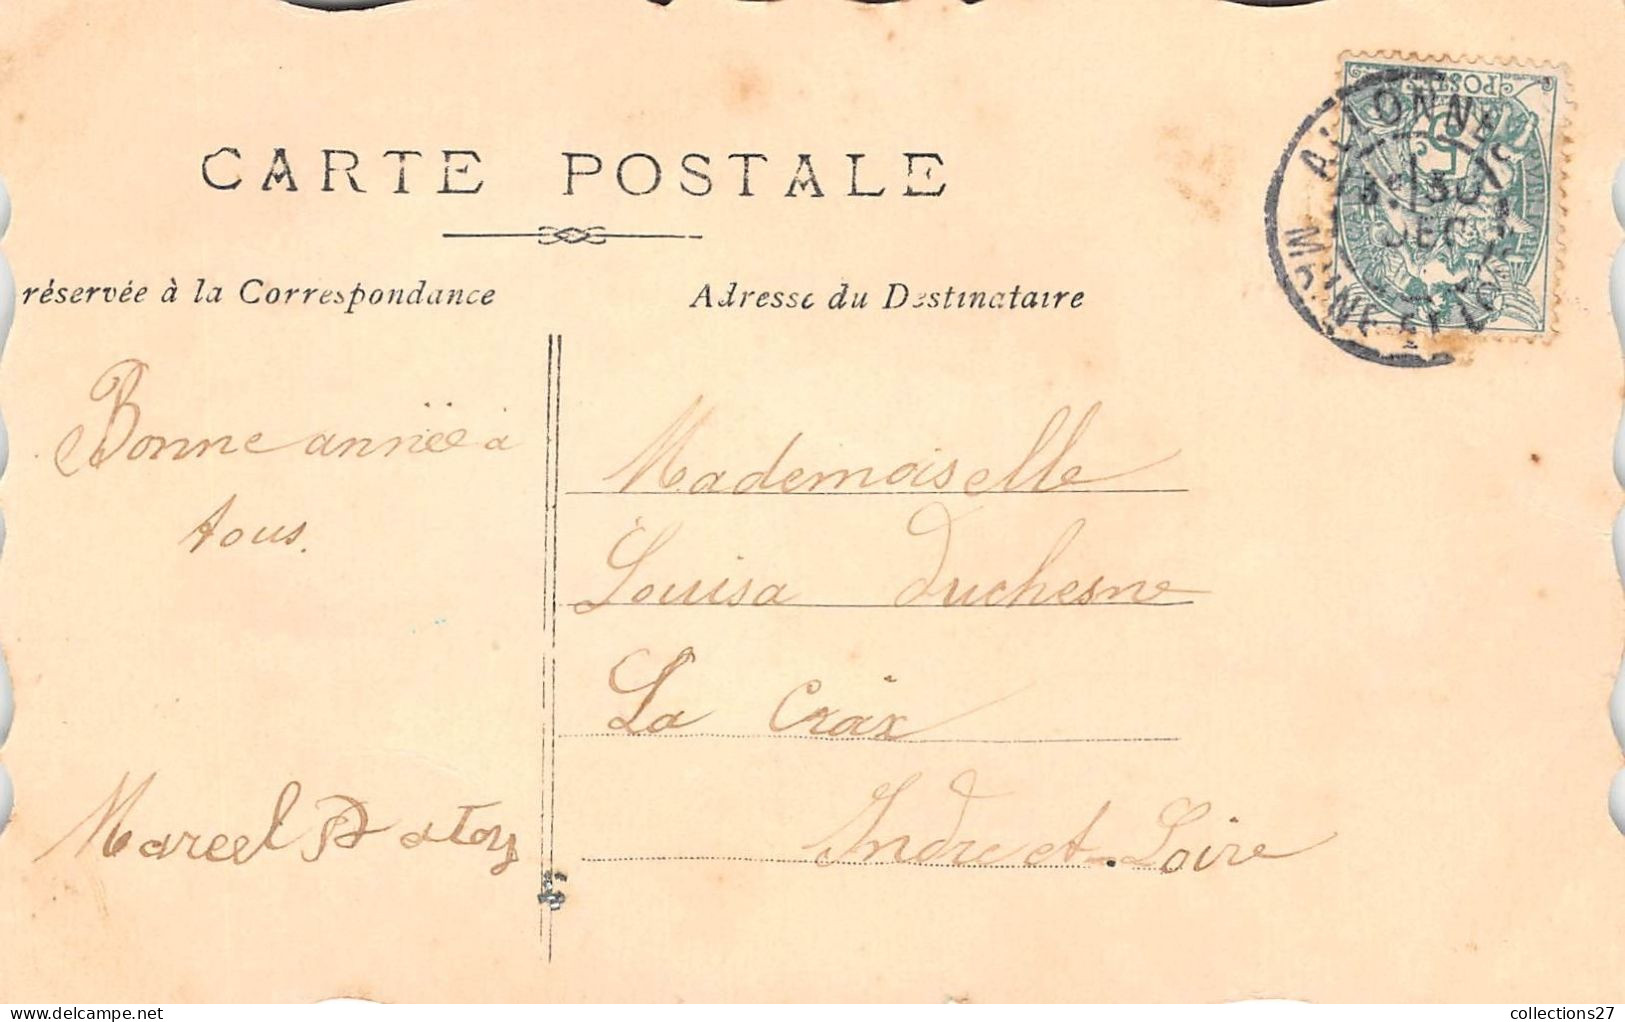 CARTE POSTALE
réservée à la Correspondance
Adresse du Destinataire
Bonne année à
tous.
Marcel
Mademoiselle
Louisa Duchesne
La Croix
Indre et Loire
ALLONNE
30
DEC
MAINE ET LOIRE
POSTE
5
collections27